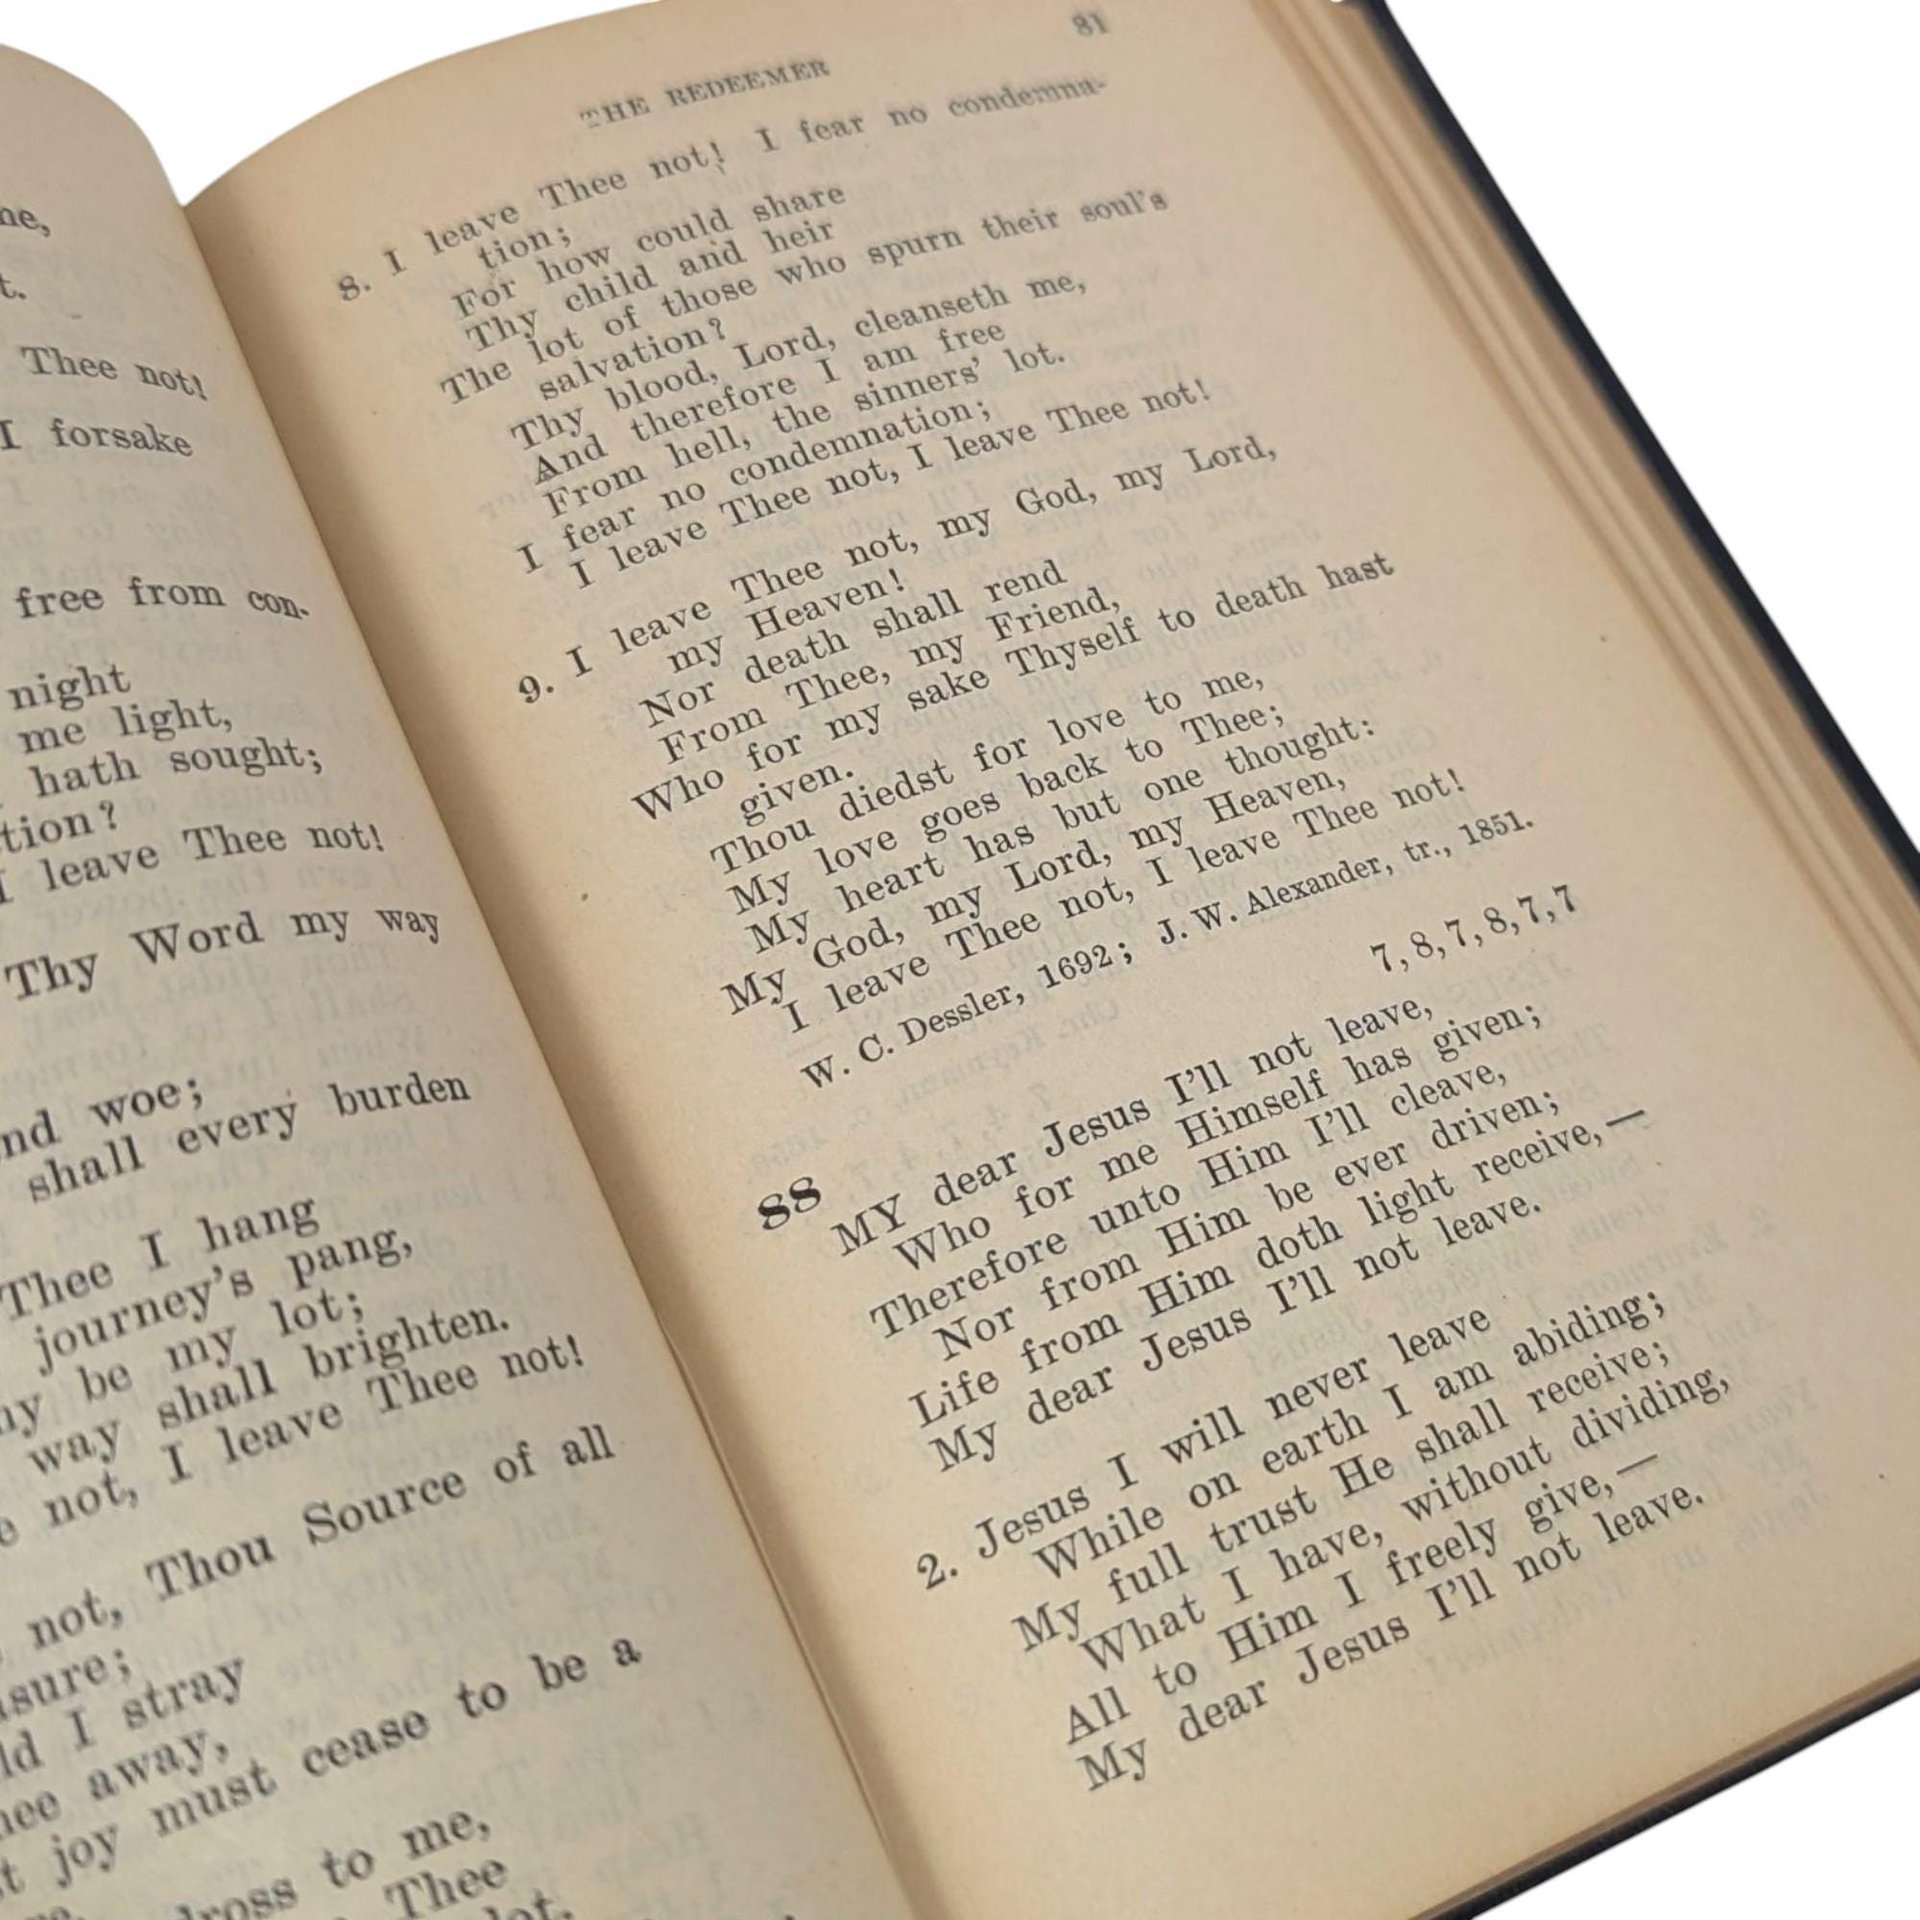 ne,
t.
Thee not!
I forsake
free from con-
night
me light,
hath sought;
tion?
I leave Thee not!
Thy Word my way
nd woe;
shall every burden
Thee I hang
journey's pang,
be my lot;
way shall brighten.
not, I leave Thee not!
not, Thou Source of all
asure;
ld I stray
hee away,
t joy must cease to be a
dross to me,
Thee
lot.
THE REDEEMER 81
8. I leave Thee not! I fear no condemna-
tion;
For how could share
Thy child and heir
The lot of those who spurn their soul's
salvation?
Thy blood, Lord, cleanseth me,
And therefore I am free
From hell, the sinners' lot.
I fear no condemnation;
I leave Thee not, I leave Thee not!
9. I leave Thee not, my God, my Lord,
my Heaven!
Nor death shall rend
From Thee, my Friend,
Who for my sake Thyself to death hast
given.
Thou diedst for love to me,
My love goes back to Thee;
My heart has but one thought:
My God, my Lord, my Heaven,
I leave Thee not, I leave Thee not!
W. C. Dessler, 1692; J. W. Alexander, tr., 1851.
7, 8, 7, 8, 7, 7
88 MY dear Jesus I'll not leave,
Who for me Himself has given;
Therefore unto Him I'll cleave,
Nor from Him be ever driven;
Life from Him doth light receive,—
My dear Jesus I'll not leave.
2. Jesus I will never leave
While on earth I am abiding;
My full trust He shall receive;
What I have, without dividing,
All to Him I freely give,—
My dear Jesus I'll not leave.